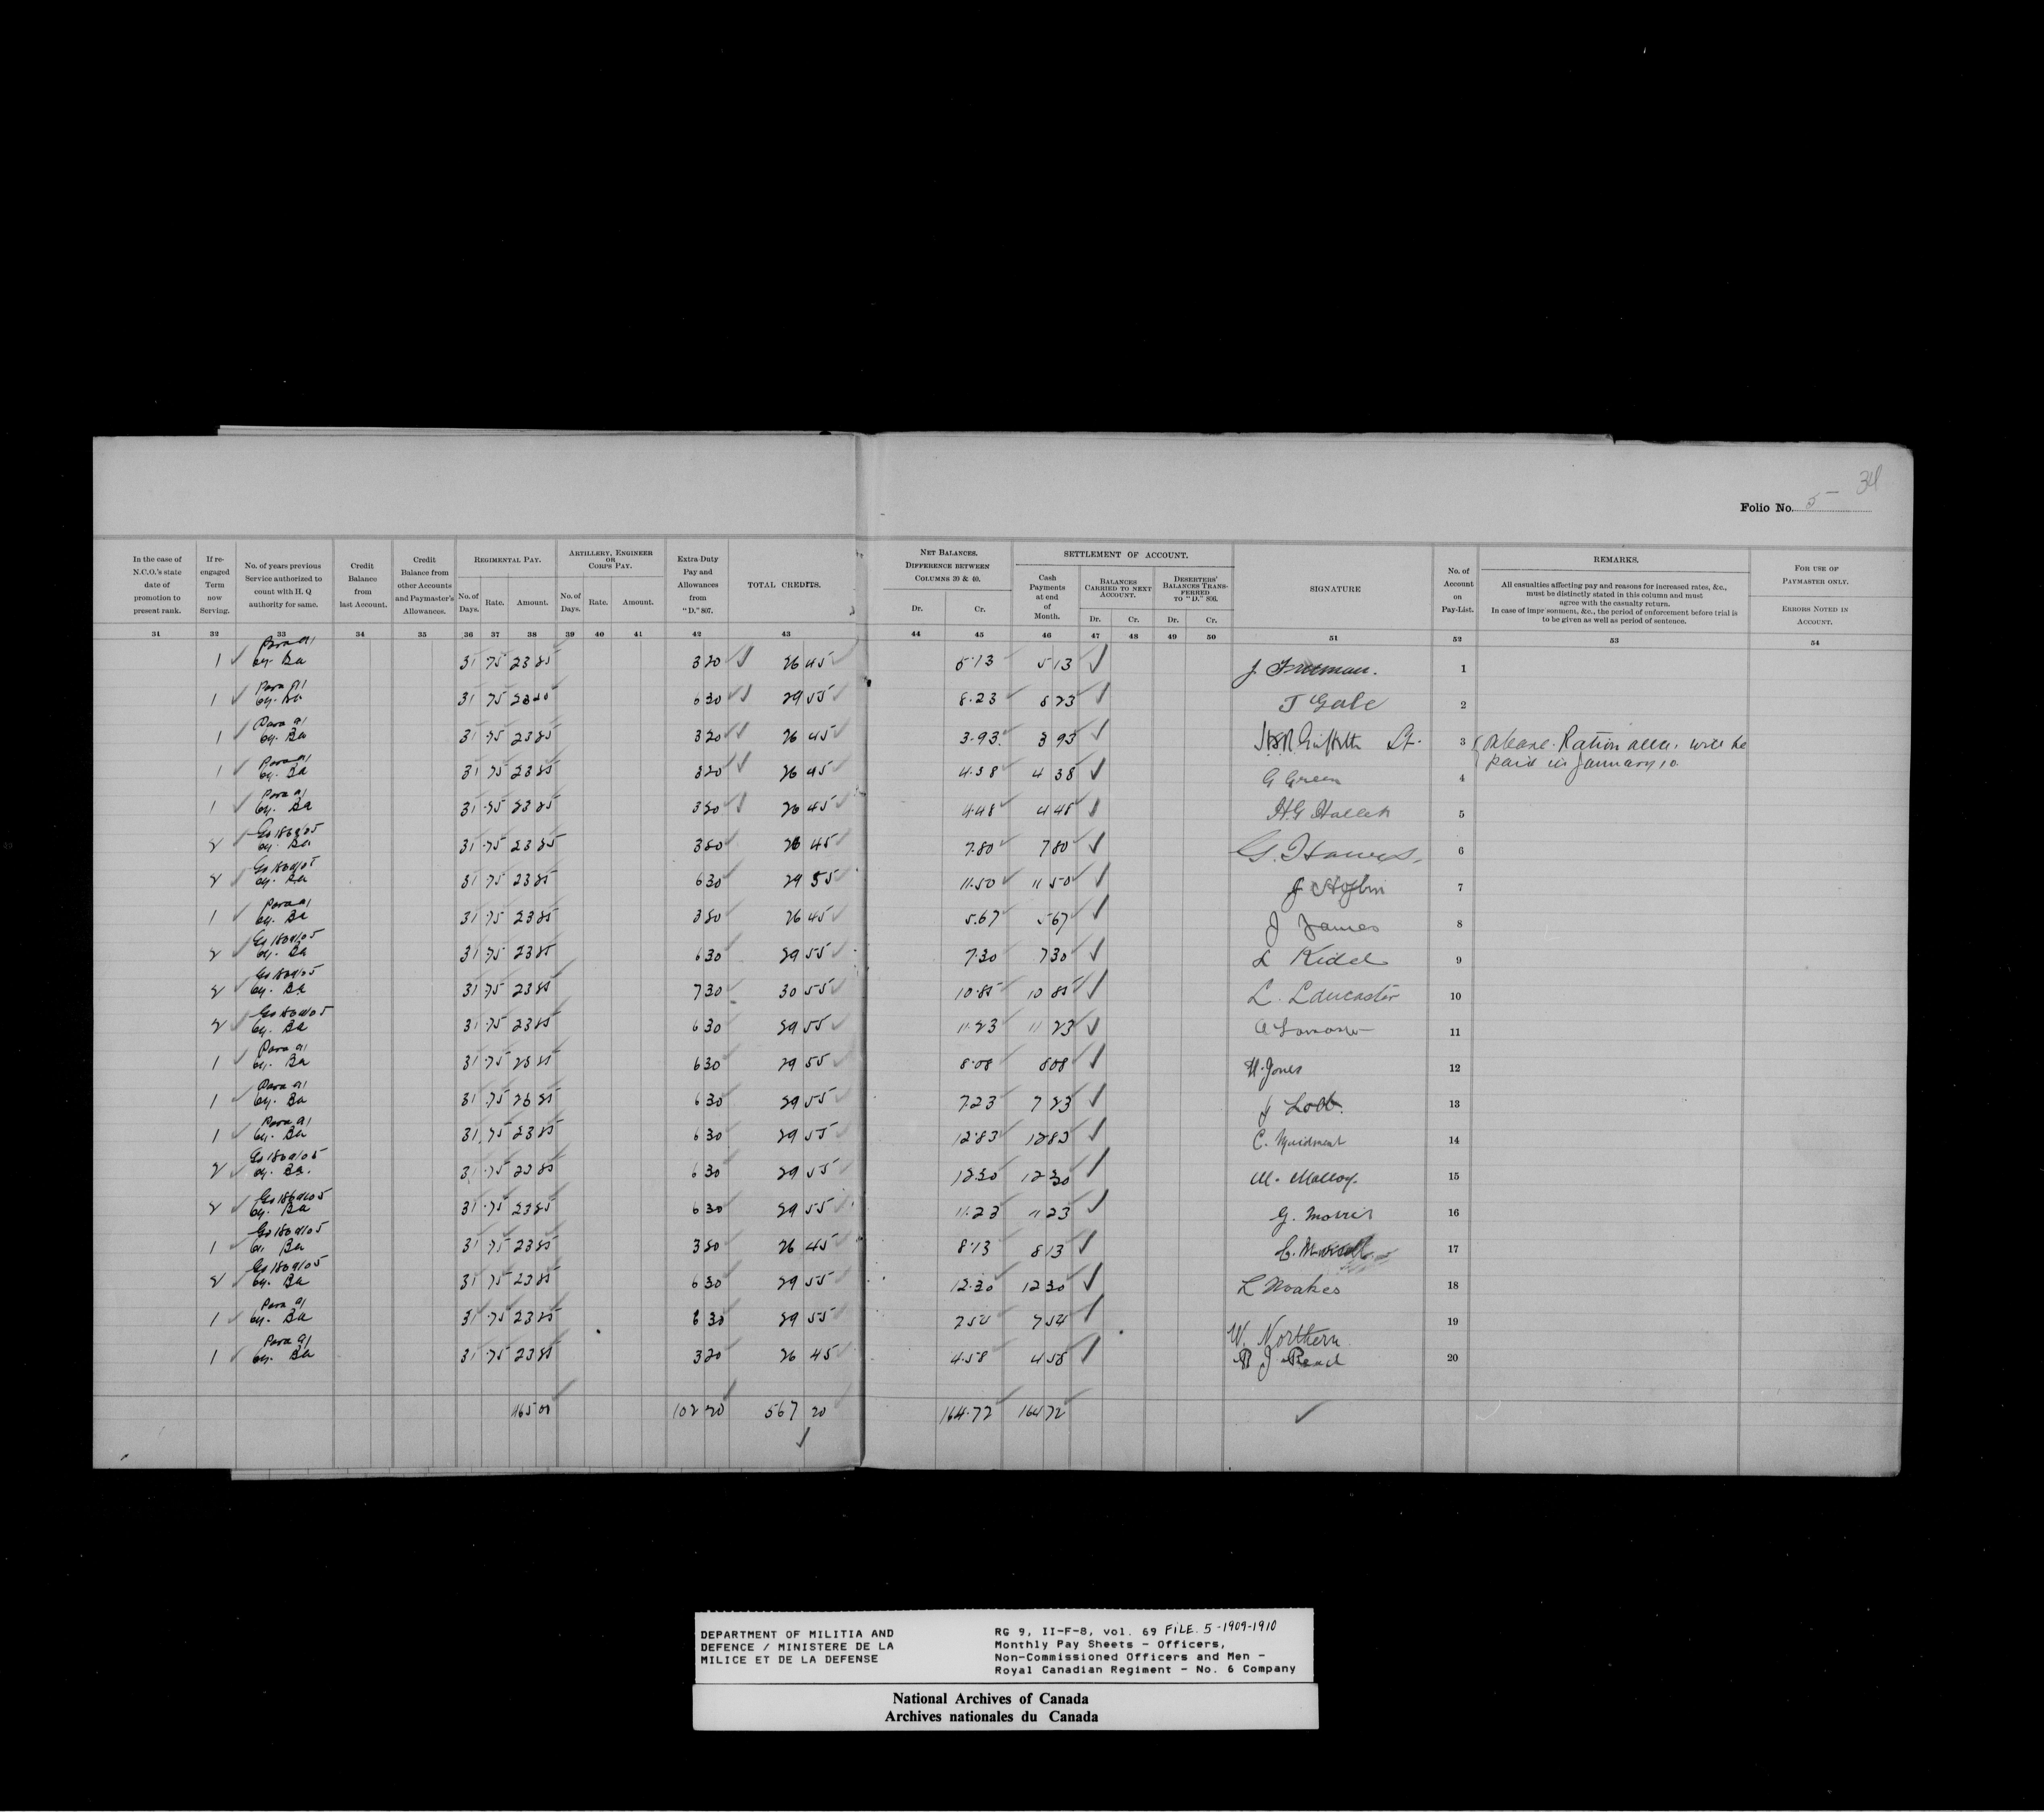 34
Folio No. 5-
In the case of N.C.O.'s state date of promotion to present rank.
If re-engaged Term now Serving.
No. of years previous Service authorized to count with H. Q authority for same.
Credit Balance from last Account.
Credit Balance from other Accounts and Paymaster's Allowances.
REGIMENTAL PAY.
No. of Days. Rate. Amount.
ARTILLERY, ENGINEER OR CORPS PAY.
No. of Days. Rate. Amount.
Extra-Duty Pay and Allowances from "D." 807.
TOTAL CREDITS.
NET BALANCES. DIFFERENCE BETWEEN COLUMNS 30 & 40.
Dr. Cr.
SETTLEMENT OF ACCOUNT.
Cash Payments at end of Month.
BALANCES CARRIED TO NEXT ACCOUNT.
Dr. Cr.
DESERTERS' BALANCES TRANSFERRED TO "D." 806.
Dr. Cr.
SIGNATURE
No. of Account on Pay-List.
REMARKS.
All casualties affecting pay and reasons for increased rates, &c., must be distinctly stated in this column and must agree with the casualty return.
In case of impr sonment, &c., the period of enforcement before trial is to be given as well as period of sentence.
FOR USE OF PAYMASTER ONLY.
ERRORS NOTED IN ACCOUNT.
31 32 33 34 35 36 37 38 39 40 41 42 43 44 45 46 47 48 49 50 51 52 53 54
1 31 75 23 25 3 20 26 45 5.13 5 13 J Freeman. 1
1 31 75 23 25 6 30 29 55 8.23 8 23 T Gale 2
1 31 75 23 25 3 20 26 45 3.93 3 93 Griffith 3 Ration will be
paid in January 10
1 31 75 23 25 3 20 26 45 4.38 4 38 G Green 4
1 31 75 23 25 3 20 26 45 4.48 4 48 H.G 5
2 31 75 23 25 3 20 26 45 7.80 7 80 G. 6
2 31 75 23 25 6 30 29 55 11.50 11 50 J 7
1 31 75 23 25 3 20 26 45 5.67 5 67 J James 8
2 31 75 23 25 6 30 29 55 7.30 7 30 L Kidd 9
2 31 75 23 25 7 30 30 55 10.85 10 85 L. Lancaster 10
2 31 75 23 25 6 30 29 55 11.23 11 23 A 11
1 31 75 23 25 6 30 29 55 8.08 8 08 H. Jones 12
1 31 75 23 25 6 30 29 55 7.23 7 23 J 13
1 31 75 23 25 6 30 29 55 12.83 12 83 C. Maidment 14
2 31 75 23 25 6 30 29 55 12.30 12 30 M. Malloy. 15
2 31 75 23 25 6 30 29 55 11.23 11 23 G. Morris 16
1 31 75 23 25 3 20 26 45 8.13 8 13 C. 17
2 31 75 23 25 6 30 29 55 12.30 12 30 L Noakes 18
1 31 75 23 25 6 30 29 55 7.54 7 54 W. Northern 19
1 31 75 23 25 3 20 26 45 4.58 4 58 R J Read 20
465 00 102 20 567 20 164.72 164 72
DEPARTMENT OF MILITIA AND
DEFENCE / MINISTERE DE LA
MILICE ET DE LA DEFENSE
RG 9, II-F-8, vol. 69 FILE. 5-1909-1910
Monthly Pay Sheets - Officers,
Non-Commissioned Officers and Men -
Royal Canadian Regiment - No. 6 Company
National Archives of Canada
Archives nationales du Canada